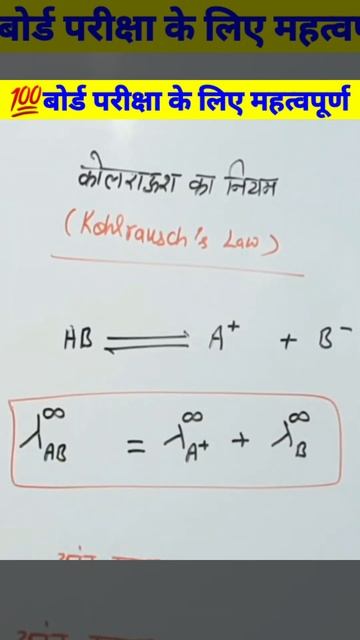 बोर्ड परीक्षा के लिए महत्वप
💯बोर्ड परीक्षा के लिए महत्वपूर्ण
कोलराऊश का नियम
(Kohlrausch's Law)
AB ⇌ A⁺ + B⁻
λ^∞_AB = λ^∞_A⁺ + λ^∞_B